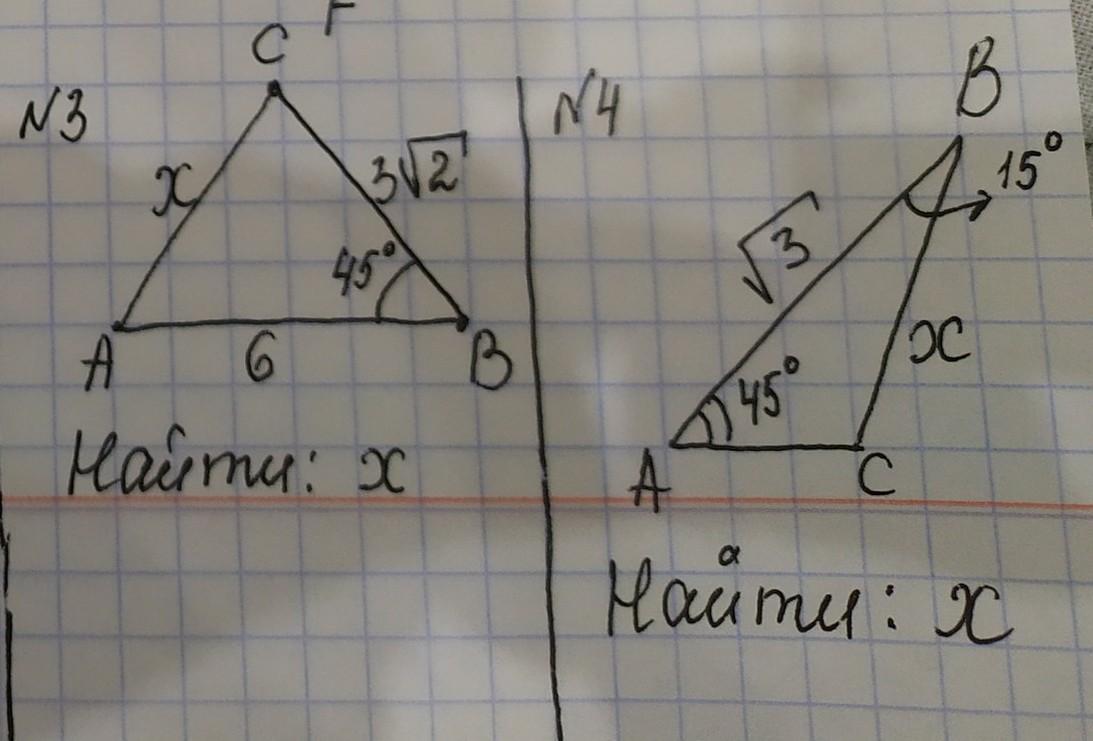 F
N3
C
x
3√2
45°
A
6
B
Найти: x
N4
B
15°
√3
x
45°
A
C
Найти: x